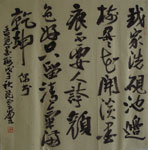 我家洗硯池邊
樹朵朵花開淡墨
痕不要人誇顏
色好只留清氣滿
乾坤